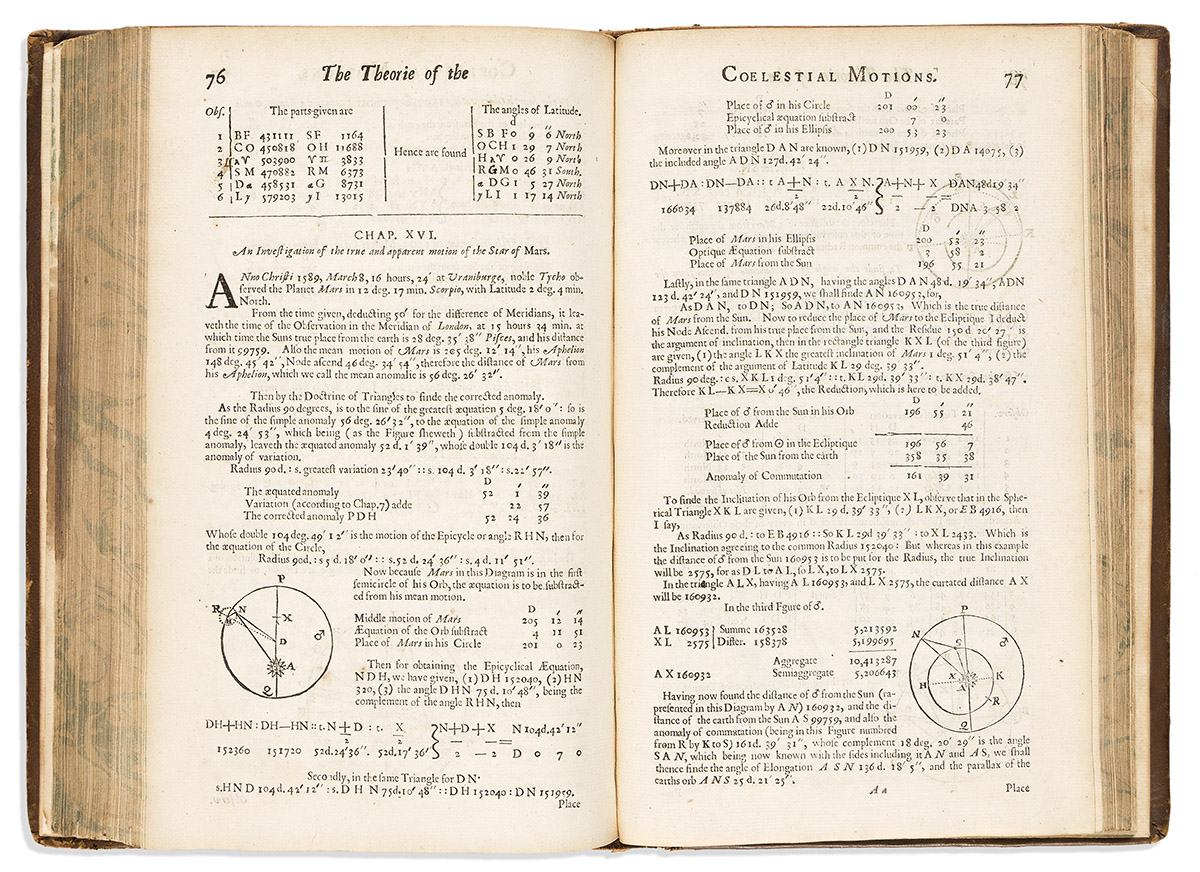 76 The Theorie of the
Obs. The parts given are The angles of Latitude.
d ′ ″
1 BF 431111 SF 1164 SBF 0 9 6 North
2 CO 450818 OH 11688 OCH 1 29 7 North
3 503900 3833 0 26 9 North
4 SM 470882 RM 6373 0 46 31 South.
5 Da 458531 aG 8731 aDG 1 5 27 North
6 Ly 579203 yI 13015 yLI 1 17 14 North
Hence are found
CHAP. XVI.
An Investigation of the true and apparent motion of the Star of Mars.
ANno Christi 1589, March 8, 16 hours, 24′ at Uraniburge, noble Tycho ob-
served the Planet Mars in 12 deg. 17 min. Scorpio, with Latitude 2 deg. 4 min.
North.
From the time given, deducting 50′ for the difference of Meridians, it lea-
veth the time of the Observation in the Meridian of London, at 15 hours 34 min. at
which time the Suns true place from the earth is 28 deg. 35′ 38″ Pisces, and his distance
from it 99759. Also the mean motion of Mars is 205 deg. 12′ 14″, his Aphelion
148 deg. 45′ 42″, Node ascend 46 deg. 34′ 54″, therefore the distance of Mars from
his Aphelion, which we call the mean anomalie is 56 deg. 26′ 32″.
Then by the Doctrine of Triangles to finde the corrected anomaly.
As the Radius 90 degrees, is to the sine of the greatest æquation 5 deg. 18′ 0″: so is
the sine of the simple anomaly 56 deg. 26′ 32″, to the æquation of the simple anomaly
4 deg. 24′ 53″, which being (as the Figure sheweth) substracted from the simple
anomaly, leaveth the æquated anomaly 52 d. 1′ 39″, whose double 104 d. 3′ 18″ is the
anomaly of variation.
Radius 90 d. : s. greatest variation 23′ 40″ :: s. 104 d. 3′ 18″ : s. 22′ 57″.
D ′ ″
The æquated anomaly 52 1 39
Variation (according to Chap. 7) adde 22 57
The corrected anomaly PDH 52 24 36
Whose double 104 deg. 49′ 12″ is the motion of the Epicycle or angle RHN, then for
the æquation of the Circle,
Radius 90d. : s 5 d. 18′ 0″ :: s. 52 d. 24′ 36″ : s. 4 d. 11′ 51″.
Now because Mars in this Diagram is in the first
semicircle of his Orb, the æquation is to be substract-
ed from his mean motion.
D ′ ″
Middle motion of Mars 205 12 14
Æquation of the Orb substract 4 11 51
Place of Mars in his Circle 201 0 23
P
R N
X
D
♂
A
Q
Then for obtaining the Epicyclical Æquation,
NDH, we have given, (1) DH 152040, (2) HN
320, (3) the angle DHN 75 d. 10′ 48″, being the
complement of the angle RHN, then
DH+HN : DH—HN :: t. N+D : t. X N+D+X N 104d. 42′ 12″
2 2
152360 151720 52d. 24′36″. 52d. 17′36′ 2 —2 D 0 7 0
Secondly, in the same Triangle for DN.
s. HND 104 d. 42′ 12″ : s. DHN 75d. 10′ 48″ :: DH 152040 : DN 151959.
Place
COELESTIAL MOTIONS. 77
D ′ ″
Place of ♂ in his Circle 201 00 23
Epicyclical æquation substract 7 0
Place of ♂ in his Ellipsis 200 53 23
Moreover in the triangle DAN are known, (1) DN 151959, (2) DA 14075, (3)
the included angle ADN 127d. 42′ 24″.
DN+DA : DN—DA :: t A+N : t. AXN. A+N+X DAN 48d 19′ 34″
2 2
166034 137884 26d. 8′48″ 22d. 10′46″ 2 —2 DNA 3 58 2
D ′ ″
Place of Mars in his Ellipsis 200 53 23
Optique Æquation substract 3 58 2
Place of Mars from the Sun 196 55 21
Lastly, in the same triangle ADN, having the angles DAN 48 d. 19′ 34″, ADN
123 d. 42′ 24″, and DN 151959, we shall finde AN 160952, for,
As DAN, to DN; So ADN, to AN 160952. Which is the true distance
of Mars from the Sun. Now to reduce the place of Mars to the Ecliptique I deduct
his Node Ascend. from his true place from the Sun, and the Residue 150 d 20′ 27″ is
the argument of inclination, then in the rectangle triangle KXL (of the third figure)
are given, (1) the angle LKX the greatest inclination of Mars 1 deg. 51′ 4″, (2) the
complement of the argument of Latitude KL 29 deg. 39′ 33″.
Radius 90 deg. : cs. XKL 1 deg. 51′ 4″ :: t. KL 29d. 39′ 33″ : t. KX 29d. 38′ 47″.
Therefore KL—KX=X 0′ 46″, the Reduction, which is here to be added.
D ′ ″
Place of ♂ from the Sun in his Orb 196 55 21
Reduction Adde 46
Place of ♂ from ☉ in the Ecliptique 196 56 7
Place of the Sun from the earth 358 35 38
Anomaly of Commutation 161 39 31
To finde the Inclination of his Orb from the Ecliptique XL, observe that in the Sphe-
rical Triangle XKL are given, (1) KL 29 d. 39′ 33″, (2) LKX, or EB 4916, then
I say,
As Radius 90 d. : to EB 4916 :: So KL 29d 39′ 33″ : to XL 2433. Which is
the Inclination agreeing to the common Radius 152040: But whereas in this example
the distance of ♂ from the Sun 160953 is to be put for the Radius, the true Inclination
will be 2575, for as DL to AL, so LX, to LX 2575.
In the triangle ALX, having AL 160953, and LX 2575, the curtated distance AX
will be 160932.
In the third Fgure of ♂.
AL 160953 Summe 163528 5,213592
XL 2575 Differ. 158378 5,199695
Aggregate 10,413287
AX 160932 Semiaggregate 5,206643
P
N
S
♂
H X K
A
R
Q
Having now found the distance of ♂ from the Sun (ra-
presented in this Diagram by AN) 160932, and the di-
stance of the earth from the Sun AS 99759, and also the
anomaly of commutation (being in this Figure numbred
from R by K to S) 161d. 39′ 31″, whose complement 18 deg. 20′ 29″ is the angle
SAN, which being now known with the sides including it AN and AS, we shall
thence finde the angle of Elongation ASN 136 d. 18′ 5″, and the parallax of the
earths orb ANS 25 d. 21′ 25″.
Aa Place